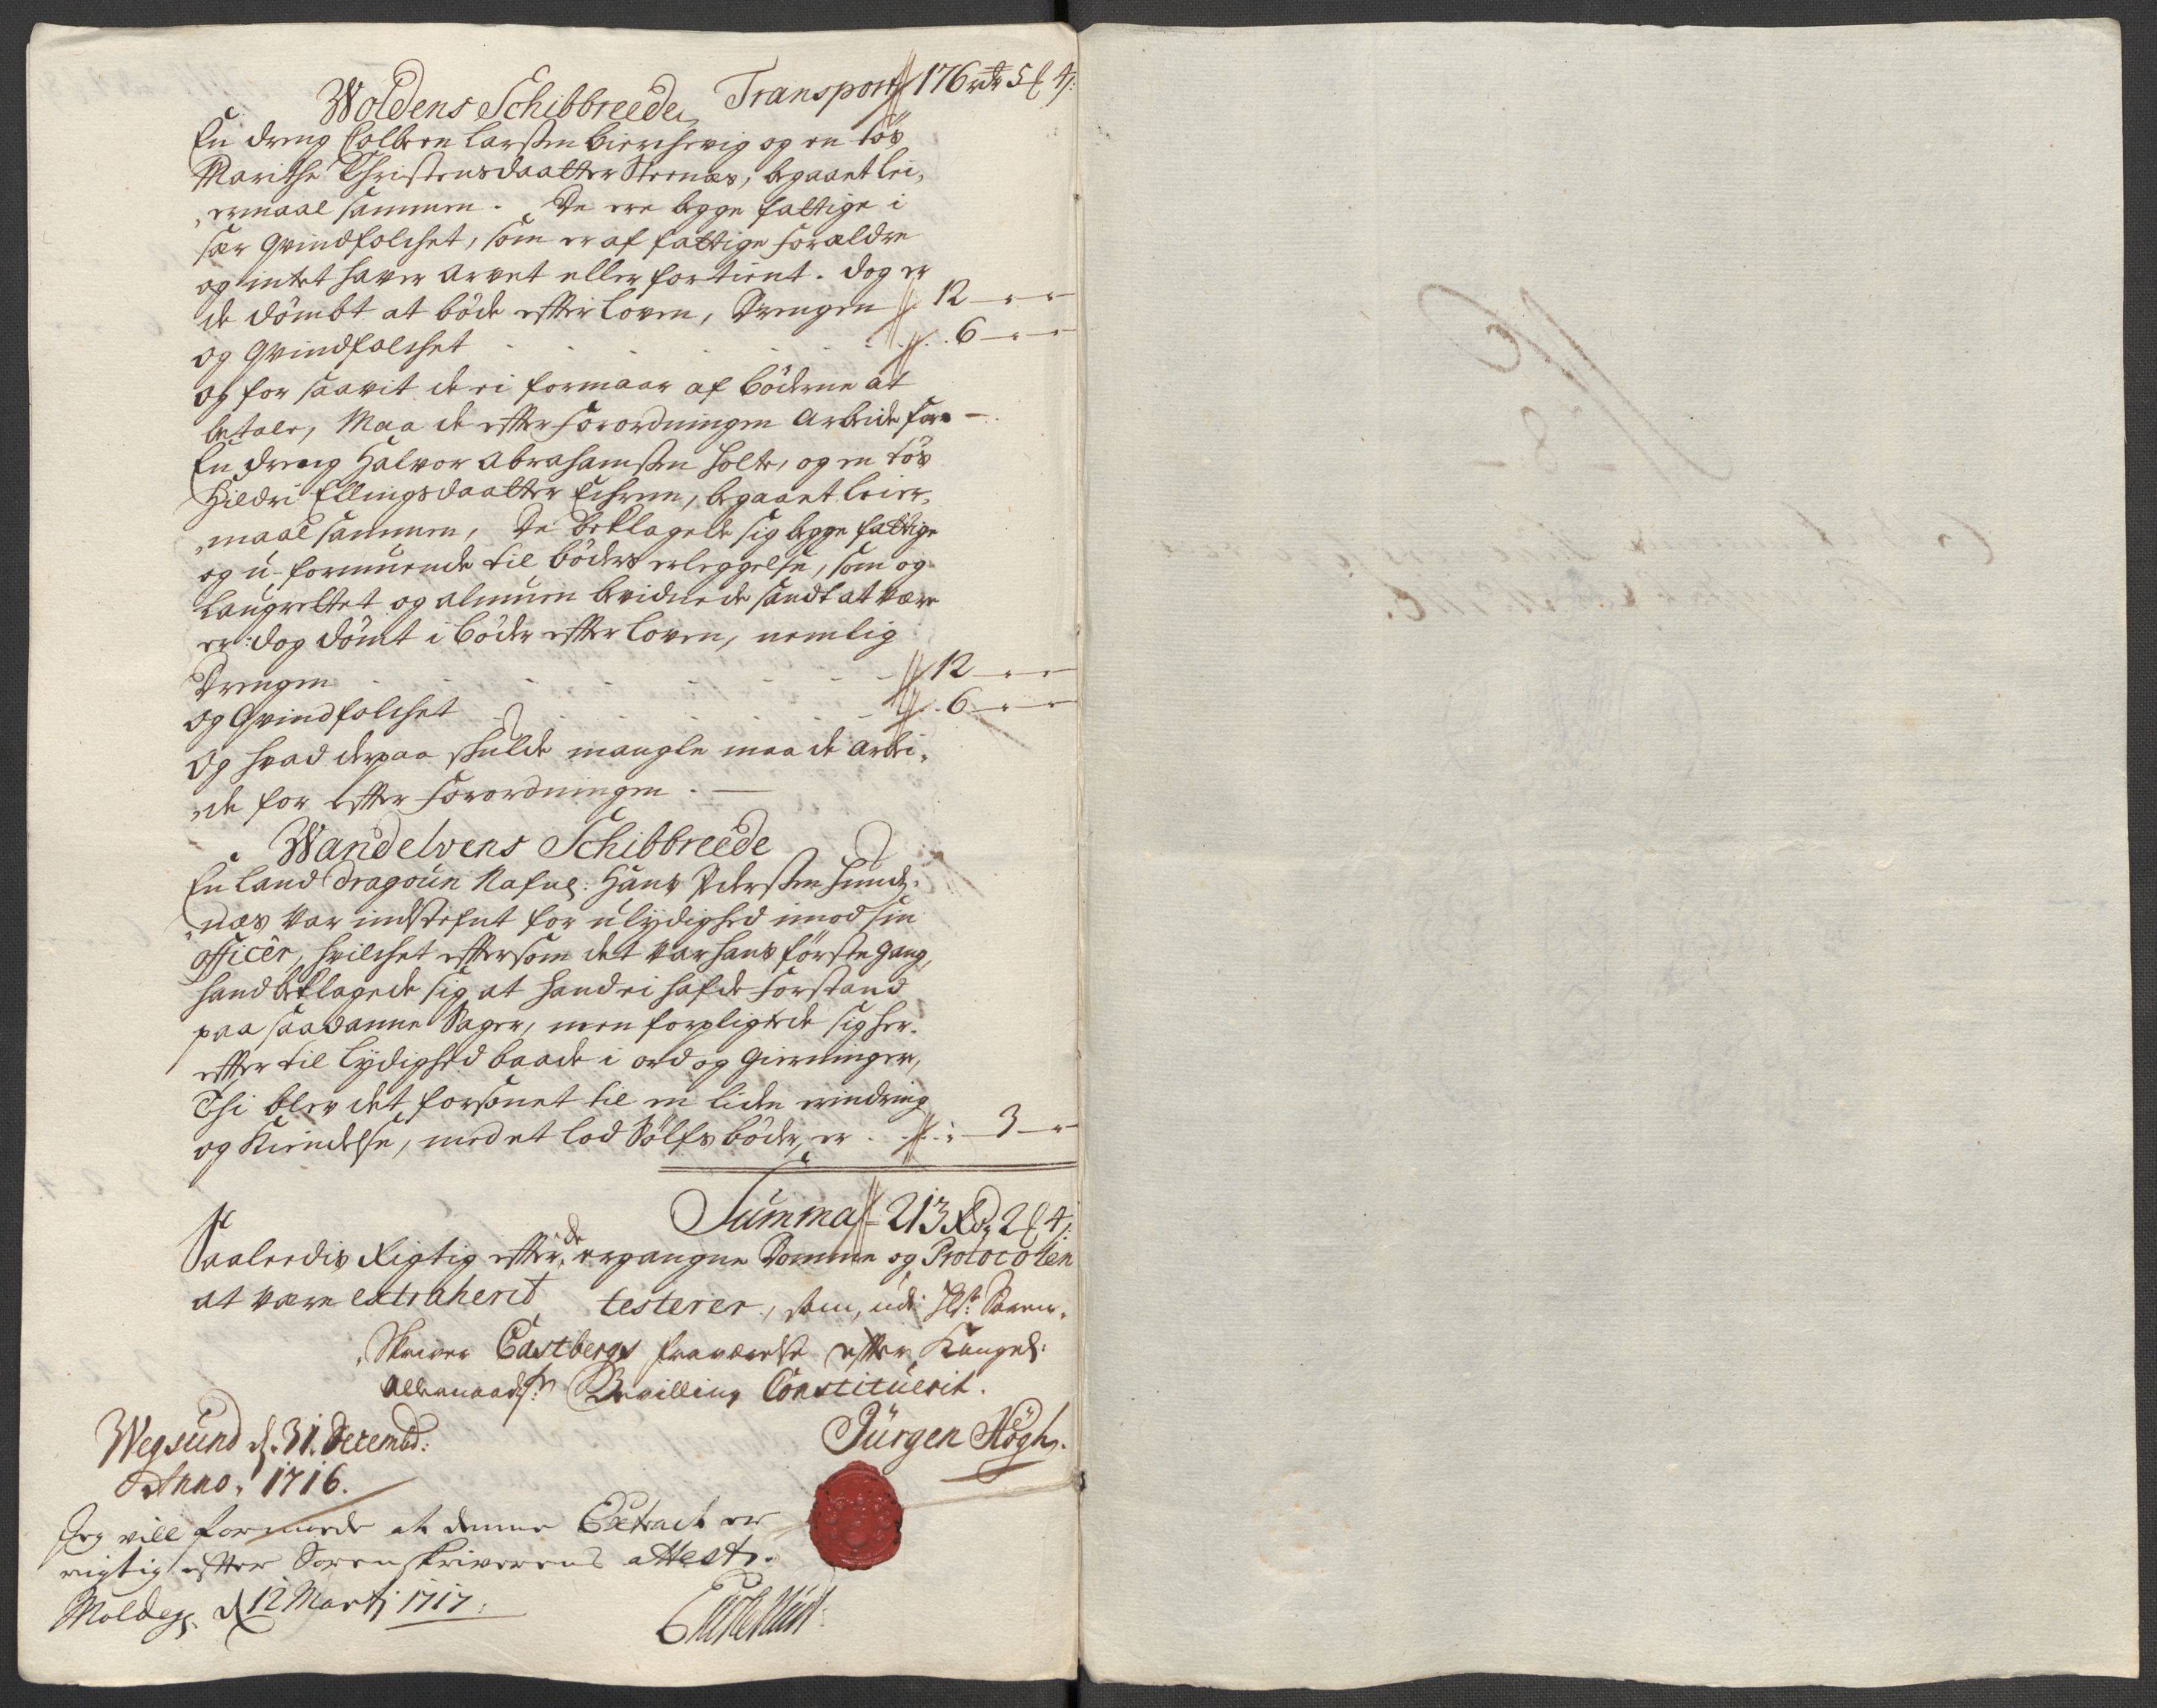 Transport 176 rdr 5 ß 4
Woldens Schibbreede
En dreng Colbeen Larssen Bierchevig og en tøs
Marithe Christensdaatter Steenæs, begaaet lei-
ermaal sammen. De ere begge fattige i
sær Qvindfolchet, som er af fattige Forældre
og intet haver arvet eller fortient. dog er
de dömbt at böde efter Loven, Drengen 12
og Qvindfolchet 6
og for saavit de ei formaar af böderne at
betale, Maa de efter Forordningen Arbeide for
En dreng Halvor Abrahamssen Holte, og en tøs
Gildri Ellingsdaatter Echrem, begaaet leier-
maal sammen, De beklagede sig begge fattige
og u-formuende til böders erleggelse, som og
Laugrettet og almuen bevidnede sandt at være
er dog dömt i böder efter Loven, nemlig
Drengen 12
og Qvindfolchet 6
Og hvad derpaa skulde mangle maa de arbei-
de for efter Forordningen.
Wandelvens Schibbreede
En Land Dragoun Nafnl: Hans Pederssen Hund-
næs var indstefnt for ulydighed imod sin
officêr, hvilchet eftersom det var hans förste gang,
hand beklagede sig at hand ei hafde Forstand
paa saadanne Sager, men forpligtede sig her-
efter til lydighed baade i ord og Gierninger,
Thi blev det forsonet til en liden erindring
og Kiendelse, med et lod Sölfs böder, er 3
Summa 213 Rdr 2 ß 4
Saaledis Rigtig efter de ergangne Domme og Protocollen
at være extraherit testerer, som, udi Sr: Soren-
Skriver Castbergs fraværelse efter Kongel:
allernaadigste Bevilling Constituerit.
Wegsund d. 31. Decembr:
Anno. 1716.
Jürgen Högh.
Jeg vill formode at denne Extract er
rigtig efter Sorenskriverens attest.
Molde d 12 Martj 1717: